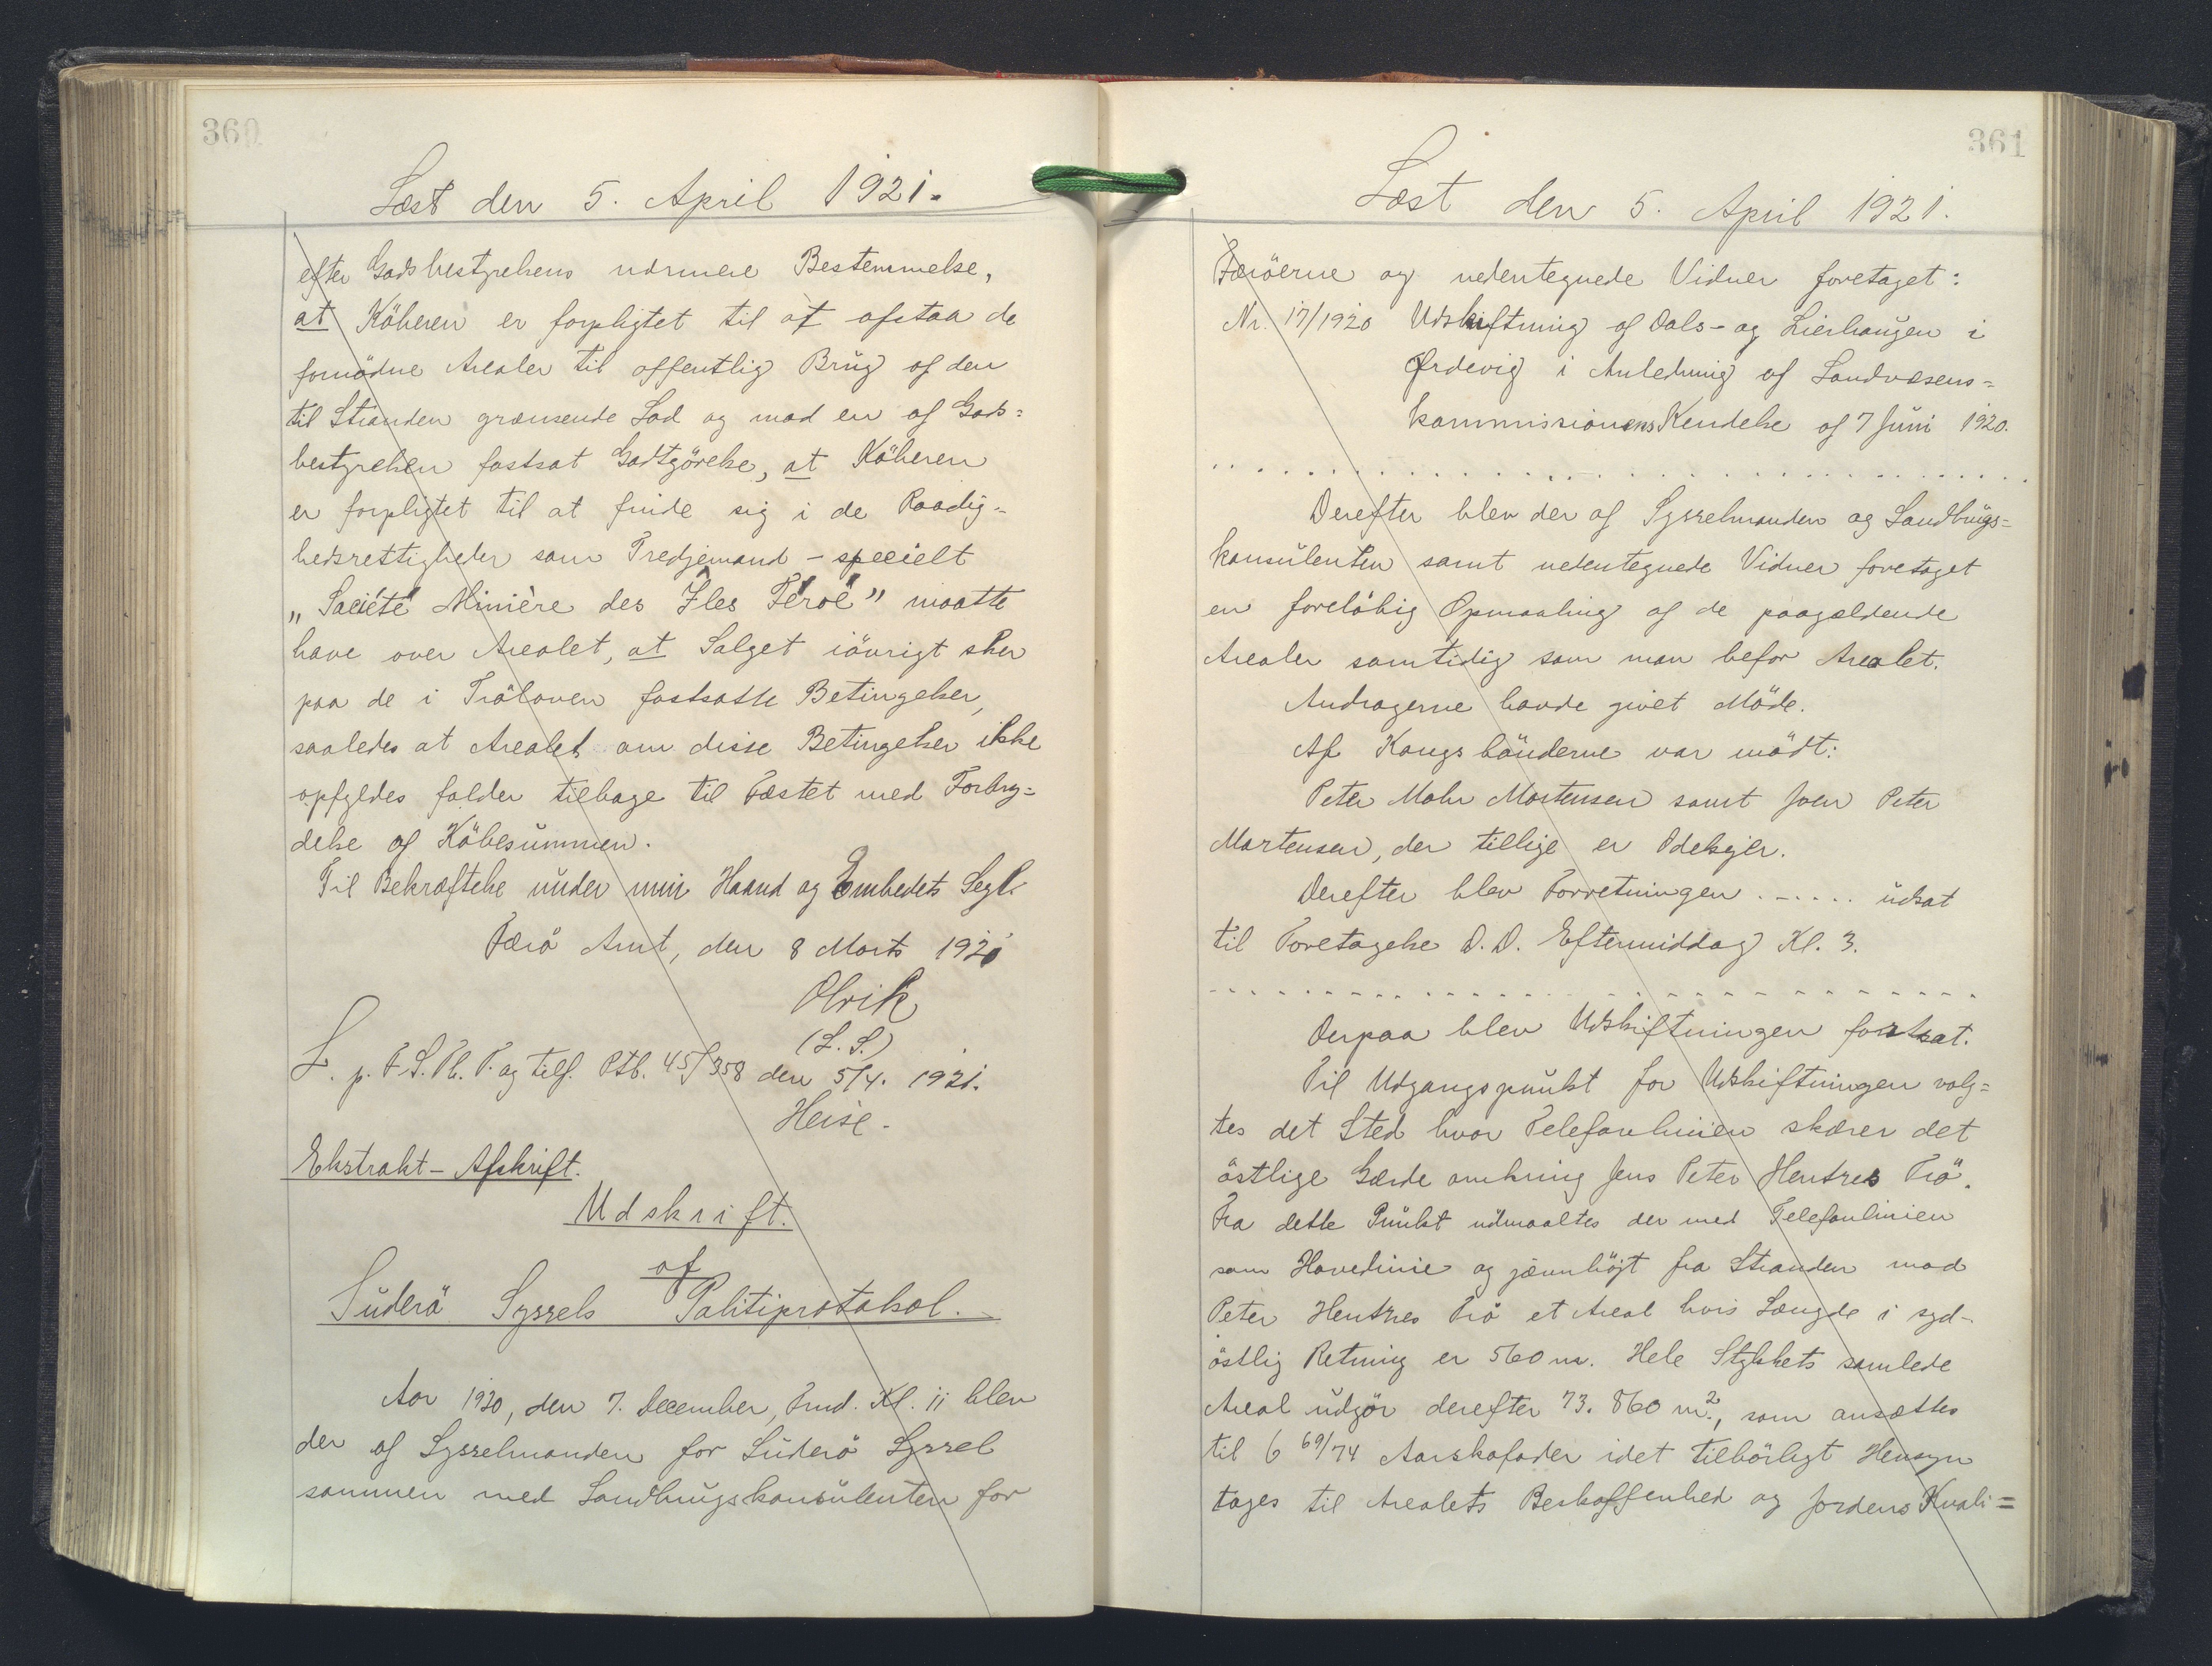 360
Læst den 5. April 1921.
efter Godsbestyrelsens nærmere Bestemmelse,
at Köberen er forpligtet til at afstaa de
fornödne Arealer til offentlig Brug af den
til Stranden grænsende Lod og mod en af Gods=
bestyrelsen fastsat Godtgörelse, at Köberen
er forpligtet til at finde sig i de Raadig=
hedsrettigheder som Tredjemand - specielt
"Société Minière des Iles Féroé" maatte
have over Arealet, at Salget iövrigt sker
paa de i Tröloven fastsatte Betingelser,
saaledes at Arealet om disse Betingelser ikke
opfyldes falder tilbage til Fæstet med Forbry=
delse af Köbesummen.
Til Bekræftelse under min Haand og Embedets Segl.
Færö Amt, den 8 Marts 1921
Olrik
(L. S.)
L. p. F. S. Th. T. og tilf. Ptb. 45/358 den 5/4. 1921.
Heise.
Ekstrakt-Afskrift.
Udskrift.
af
Suderö Syssels Politiprotokol.
Aar 1920, den 7. December, Fmd. Kl. 11 blev
der af Sysselmanden for Suderö Syssel
sammen med Landbrugskonsulenten for
361
Læst den 5. April 1921.
Færöerne og nedentegnede Vidner foretaget:
Nr. 17/1920 Udskiftning af Dals- og Lierhaugen i
Ørdevig i Anledning af Landvæsens=
kommissionens Kendelse af 7 Juni 1920.
. . . . . . . . . . . . . . . . . . . . . . . . . .
Derefter blev der af Sysselmanden og Landbrugs=
konsulenten samt nedentegnede Vidner foretaget
en forelöbig Opmaaling af de paagældende
Arealer samtidig som man befor Arealet.
Andragerne havde givet Möde.
Af Kongsbönderne var mödt:
Peter Mohr Mortensen samt Joen Peter
Mortensen, der tillige er Odelsejer.
Derefter blev Forretningen . - . . . . udsat
til Foretagelse D. D. Eftermiddag Kl. 3.
- - - - - - - - - - - - - - - - - - - - - - - -
Derpaa blev Udskiftningen fortsat.
Til Udgangspunkt for Udskiftningen valg=
tes det Sted hvor Telefonlinien skærer det
östlige Gærde omkring Jens Peter Hentzes Trö.
Fra dette Punkt udmaaltes der med Telefonlinien
som Hovedlinie og jævnhöjt fra Stranden mod
Peter Hentzes Trö et Areal hvis Længde i syd-
östlig Retning er 560 m. Hele Stykkets samlede
Areal udgör derefter 73. 860 m2., som ansættes
til 6 69/74 Aarskofoder idet tilbörligt Hensyn
tages til Arealets Beskaffenhed og Jordens Kvali=